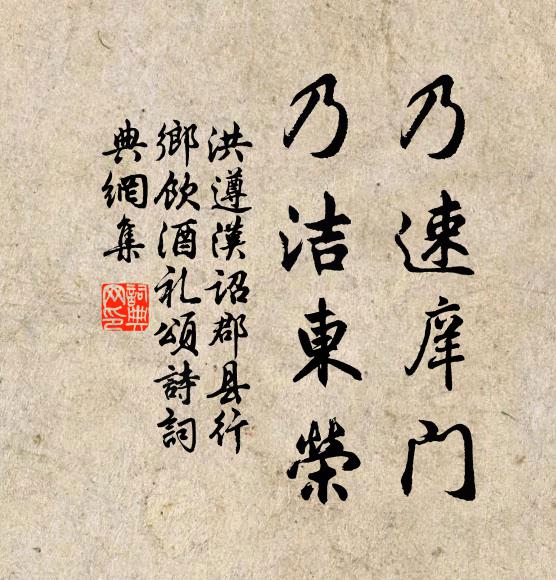 乃速庠门
乃洁東榮
洪遵漢詔郡县行
鄉飲酒礼頌詩詞
典網集
詞典網印